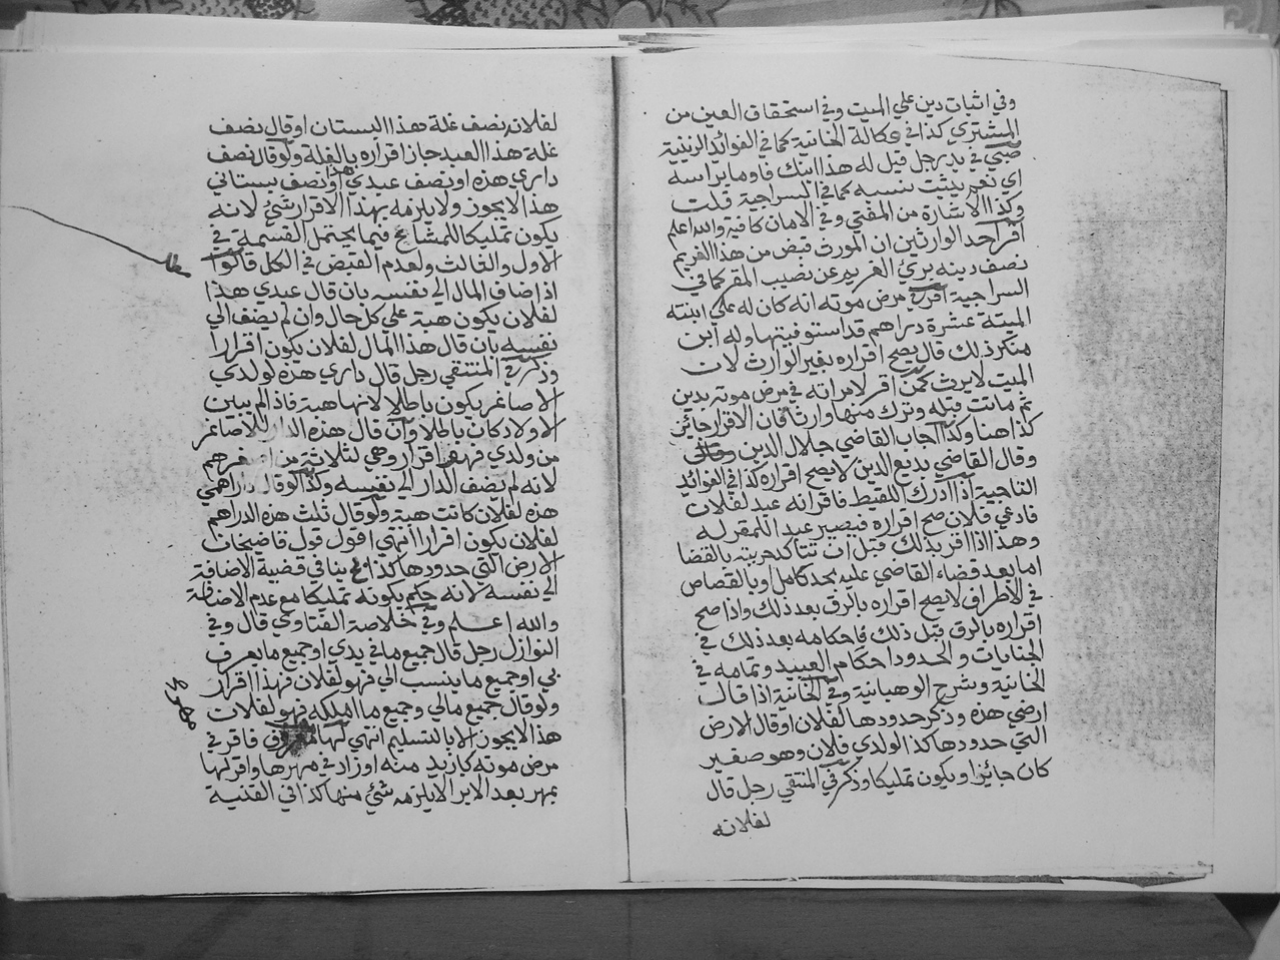 وفي اثبات دين علي الميت وفي استحقاق العين من
المشتري كذا في وكالة الخانية كما في الفوائد الزينية
صبي في يد رجل قيل له هذا ابنك فاوما براسه
اي نعم يثبت نسبه كما في السراجية قلت
وكذا الاشارة من المفتي وفي الامان كافية والله اعلم
اقر احد الوارثين ان المورث قبض من هذا الغريم
نصف دينه بريئ الغريم عن نصيب المقر كما في
السراجية اقر في مرض موته انه كان له علي ابنته
الميتة عشرة دراهم قد استوفيتها وله ابن
منكر ذلك قال يصح اقراره بغير الوارث لان
الميت لا يرث كمن اقر لامراته في مرض موته بدين
ثم ماتت قبله وترك منها وارثا فان الاقرار جائز
كذا هنا وكذا اجاب القاضي جلال الدين
وقال القاضي بديع الدين لا يصح اقراره كذا في الفوائد
التاجية اذا ادرك اللقيط فاقر انه عبد لفلان
فادعي فلان صح اقراره فيصير عبد اللمقر له
وهذا اذا اقر بذلك قبل ان تتاكد حريته بالقضا
اما بعد قضاء القاضي عليه بحد كامل او بالقصاص
في الاطراف لا يصح اقراره بالرق بعد ذلك واذا صح
اقراره بالرق قبل ذلك فاحكامه بعد ذلك في
الجنايات والحدود احكام العبيد وتمامه في
الخانية وشرح الوهبانية وفي الخانية اذا قال
ارضي هذه وذكر حدودها لفلان او قال الارض
التي حدودها كذا لولدي فلان وهو صغير
كان جائزا ويكون تمليكا وذكر في المنتقي رجل قال
لفلانه
لفلانه نصف غلة هذا البستان او قال نصف
غلة هذا العبد جاز اقراره بالغلة ولو قال نصف
داري هذه او نصف عبدي هذا او نصف بستاني
هذا لا يجوز ولا يلزمه بهذا الاقرار شئ لانه
يكون تمليكا للمشاع فيما يحتمل القسمة في
الاول والثالث ولعدم القبض في الكل قالوا
اذا ضاف المال الي نفسه بان قال عبدي هذا
لفلان يكون هبة علي كل حال وان لم يضف الي
نفسه بان قال هذا المال لفلان يكون اقرارا
وذكر في المنتقي رجل قال داري هذه لولدي
الاصاغر يكون باطلا لانها هبة فاذا لم يبين
الاولاد كان باطلا وان قال هذه الدار للاصاغر
من ولدي فهو اقرار وهي لثلاثة من اصغرهم
لانه لم يضف الدار الي نفسه وكذا لو قال دراهمي
هذه لفلان كانت هبة ولو قال ثلث هذه الدراهم
لفلان يكون اقرارا انتهي اقول قول قاضيخان
الارض التي حدودها كذا الخ ينافي قضية الاضافة
الي نفسه لانه حكم بكونه تمليكا مع عدم الاضافة
والله اعلم وفي خلاصة الفتاوي قال وفي
النوازل رجل قال جميع ما في يدي او جميع ما يعرف
بي او جميع ما ينسب الي فهو لفلان فهذا اقرار
ولو قال جميع مالي وجميع ما املكه فهو لفلان
هذا لا يجوز الا بالتسليم انتهي لها فاقر في
مرض موته كازيد منه او زاد في مهرها واقر لها
بمهر بعد الابرا لا يلزمه شئ منها كذا في القنية